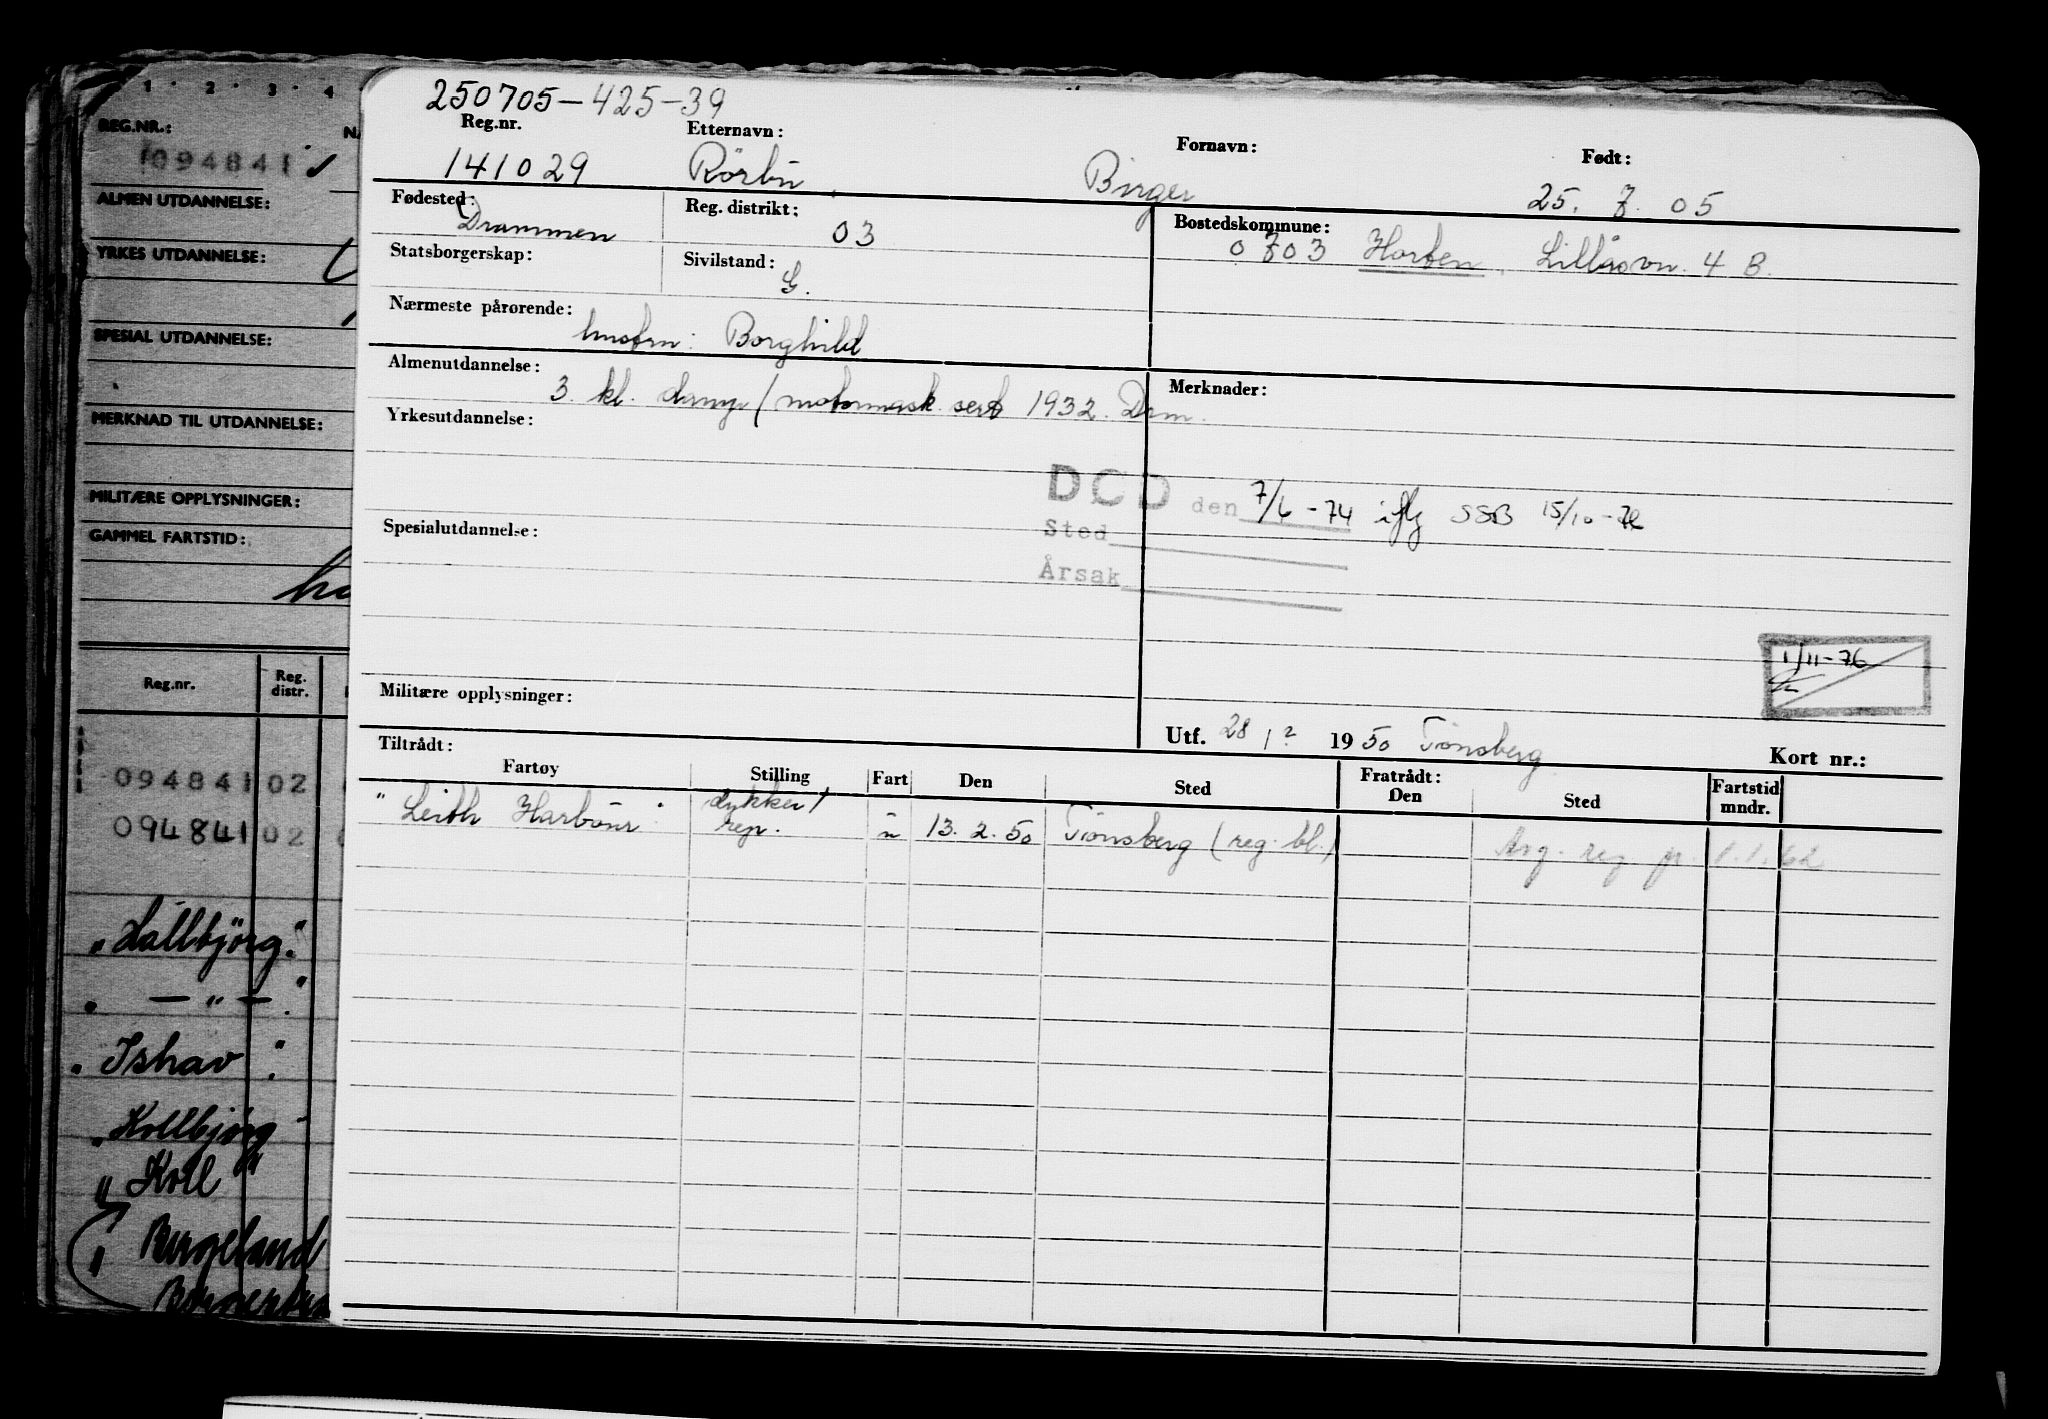 1 · 2 · 3 · 4
REG.NR.:
094841
ALMEN UTDANNELSE:
YRKES UTDANNELSE:
SPESIAL UTDANNELSE:
MERKNAD TIL UTDANNELSE:
MILITÆRE OPPLYSNINGER:
GAMMEL FARTSTID:
Reg.nr. Reg. distr.
094841 02
094841 02
— " —
"Ishav"
"Kollbjørg"
"Koll"
250705-425-39
Reg.nr. Etternavn: Fornavn: Født:
141029 Rörbu, Birger 25. 7. 05
Fødested: Drammen Reg. distrikt: 03 Bostedskommune:
0703 Horten, Lillåsvn. 4 B.
Statsborgerskap: Sivilstand: G.
Nærmeste pårørende:
hustru: Borghild
Almenutdannelse: Merknader:
3 kl. damp/motormask. sert 1932. Drm.
Yrkesutdannelse:
DCD den 7/6-74 iflg SSB 15/10-76
Sted
Årsak
Spesialutdannelse:
1/11-76
Militære opplysninger:
Utf. 28/2 1950 Tönsberg Kort nr.:
Tiltrådt: Fratrådt:
Fartøy Stilling Fart Den Sted Den Sted Fartstid mndr.
"Leith Harbour" dykker/ rep. u 13.2.50 Tönsberg (reg. bl.) Avg. reg. pr. 1.1.62